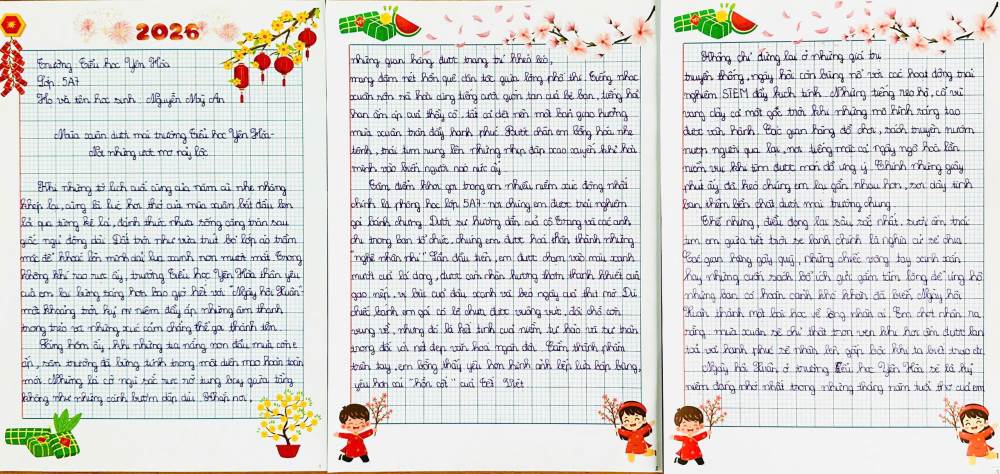 2026
Trường Tiểu học Yên Hòa
Lớp: 5A7
Họ và tên học sinh: Nguyễn Mỹ An
Mùa xuân dưới mái trường Tiểu học Yên Hòa-
Nơi những ước mơ nảy lộc
Khi những tờ lịch cuối cùng của năm cũ nhẹ nhàng
khép lại, cũng là lúc hơi thở của mùa xuân bắt đầu len
lỏi qua từng kẽ lá, đánh thức nhựa sống căng tràn sau
giấc ngủ đông dài. Đất trời như vừa trút bỏ lớp áo trầm
mặc để khoác lên mình dải lụa xanh non mướt mát. Trong
không khí rạo rực ấy, trường Tiểu học Yên Hòa thân yêu
của em lại bừng sáng hơn bao giờ hết với "Ngày hội Xuân"
một khoảng trời ký ức niệm đầy ắp những âm thanh
trong trẻo và những xúc cảm chẳng thể gọi thành tên.
Sáng hôm ấy, khi những tia nắng non đầu mùa còn e
ấp, sân trường đã bừng tỉnh trong một diện mạo hoàn toàn
mới. Những lá cờ ngũ sắc rực rỡ tung bay giữa tầng
không như những cánh bướm dập dìu. Khắp nơi,
những gian hàng được trang trí khéo léo,
mang đậm nét hồn quê dân tộc giữa lòng phố thị. Tiếng nhạc
xuân rộn rã hòa cùng tiếng cười giòn tan của bè bạn, tiếng hỏi
han ấm áp của thầy cô, tất cả dệt nên một bản giao hưởng
mùa xuân tràn đầy hạnh phúc. Bước chân em bỗng hóa nhẹ
tênh, trái tim rung lên những nhịp đập xao xuyến khi hòa
mình vào biển người náo nức ấy.
Tâm điểm khơi gợi trong em nhiều niềm xúc động nhất
chính là phòng học lớp 5A7- nơi chúng em được trải nghiệm
gói bánh chưng. Dưới sự hướng dẫn của cô Trang và các anh
chị trong ban tổ chức, chúng em được hóa thân thành những
"nghệ nhân nhí". Lần đầu tiên, em được chạm vào màu xanh
mướt của lá dong, được cảm nhận hương thơm thanh khiết của
gạo nếp, vị bùi của đậu xanh và béo ngậy của thịt mỡ. Dù
chiếc bánh em gói có lẽ chưa được vuông vức, đôi chỗ còn
vụng về, nhưng đó là kết tinh của niềm tự hào và sự trân
trọng đối với nét đẹp văn hóa ngàn đời. Cầm thành phẩm
trên tay, em bỗng thấy yêu hơn hình ảnh bếp lửa bập bùng,
yêu hơn cái "hồn cốt" của Tết Việt.
Không chỉ dừng lại ở những giá trị
truyền thống, ngày hội còn bùng nổ với các hoạt động trải
nghiệm STEM đầy kịch tính. Những tiếng reo hò, cổ vũ
vang dậy cả một góc trời khi những mô hình sáng tạo
được vận hành. Các gian hàng đồ chơi, sách truyện nườm
nượp người qua lại, nơi tiếng mặc cả ngây ngô hòa lẫn
niềm vui khi tìm được món đồ ưng ý. Chính những giây
phút ấy đã kéo chúng em lại gần nhau hơn, sợi dây tình
bạn thêm bền chặt dưới mái trường chung.
Thế nhưng, điều đọng lại sâu sắc nhất, sưởi ấm trái
tim em giữa tiết trời se lạnh chính là nghĩa cử sẻ chia.
Các gian hàng gây quỹ, những chiếc vòng tay xinh xắn
hay những cuốn sách bổ ích gửi gắm tấm lòng để ủng hộ
những bạn có hoàn cảnh khó khăn đã biến Ngày hội
Xuân thành một bài học về lòng nhân ái. Em chợt nhận ra
rằng: mùa xuân sẽ chỉ thật trọn vẹn khi hơi ấm được lan
tỏa và hạnh phúc sẽ nhân lên gấp bội khi ta biết trao đi.
Ngày hội Xuân ở trường Tiểu học Yên Hòa sẽ là kỷ
niệm đáng nhớ nhất trong những tháng năm tuổi thơ của em